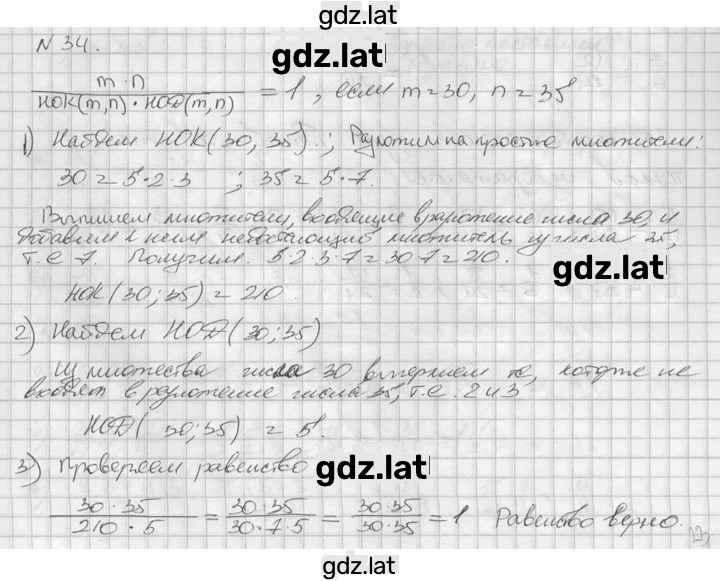 gdz.lat
№34.
gdz.lat
m·n / НОК(m,n)·НОД(m,n) = 1, если m=30, n=35
1) Найдем НОК(30, 35).; Разложим на простые множители:
30 = 5·2·3 ; 35 = 5·7.
Выпишем множители, входящие в разложение числа 30, и
добавляем к ним недостающий множитель из числа 35,
т.е 7. Получим. 5·2·3·7=30·7=210.
gdz.lat
НОК(30;35) = 210.
2) Найдем НОД(30;35)
Из множества числа 30 вычеркнем те, которые не
входят в разложение числа 35, т.е. 2 и 3
НОД(30;35) = 5.
gdz.lat
3) Проверяем равенство
30·35 / 210·5 = 30·35 / 30·7·5 = 30·35 / 30·35 = 1 Равенство верно.
gdz.lat